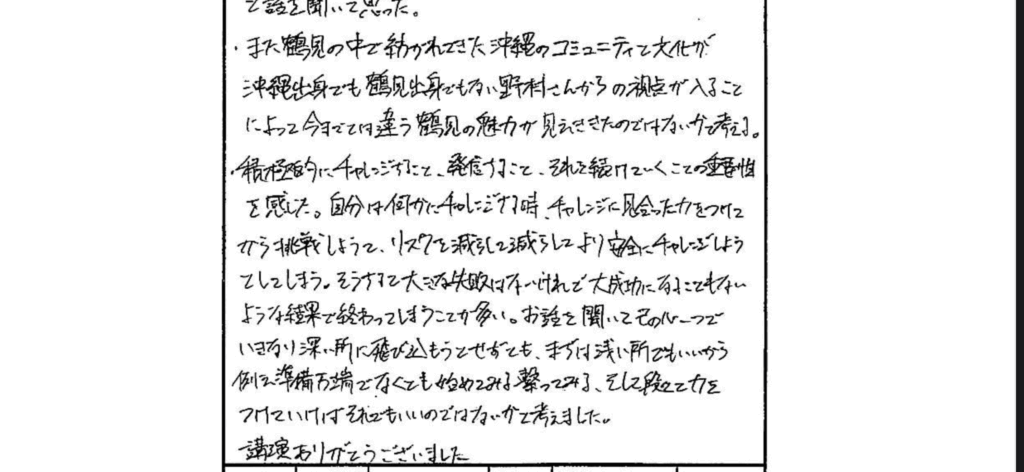 て話を聞いて思った。
・また鶴見の中で紡がれてきた沖縄のコミュニティと文化が
沖縄出身でも鶴見出身でもない野村さんからの視点が入ること
によって今までとは違う鶴見の魅力が見えてきたのではないかと考える。
・積極的にチャレンジすること、発信すること、それを続けていくことの重要性
を感じた。自分は何かにチャレンジする時、チャレンジに見合った力をつけて
から挑戦しようと、リスクを減らして減らしてより安全にチャレンジしよう
としてしまう。そうすると大きな失敗はないけれど大成功になることもない
ような結果で終わってしまうことが多い。お話を聞いてその心一つで
いきなり深い所に飛び込もうとせずとも、まずは浅い所でもいいから
例え準備万端でなくても始めてみる繋ってみる、そして段々と力を
つけていけばそれでもいいのではないかと考えました。
講演ありがとうございました